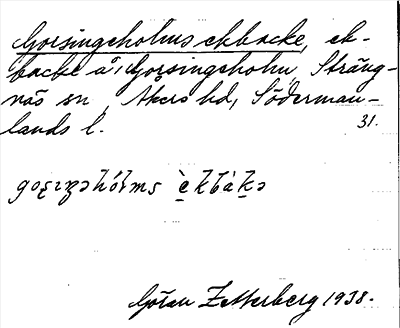 Gorsingeholms ekbacke, ek-
backe å Gorsingeholm, Sträng-
näs sn, Åkers hd, Söderman-
lands l.
31.
Götan Zetterberg 1938.